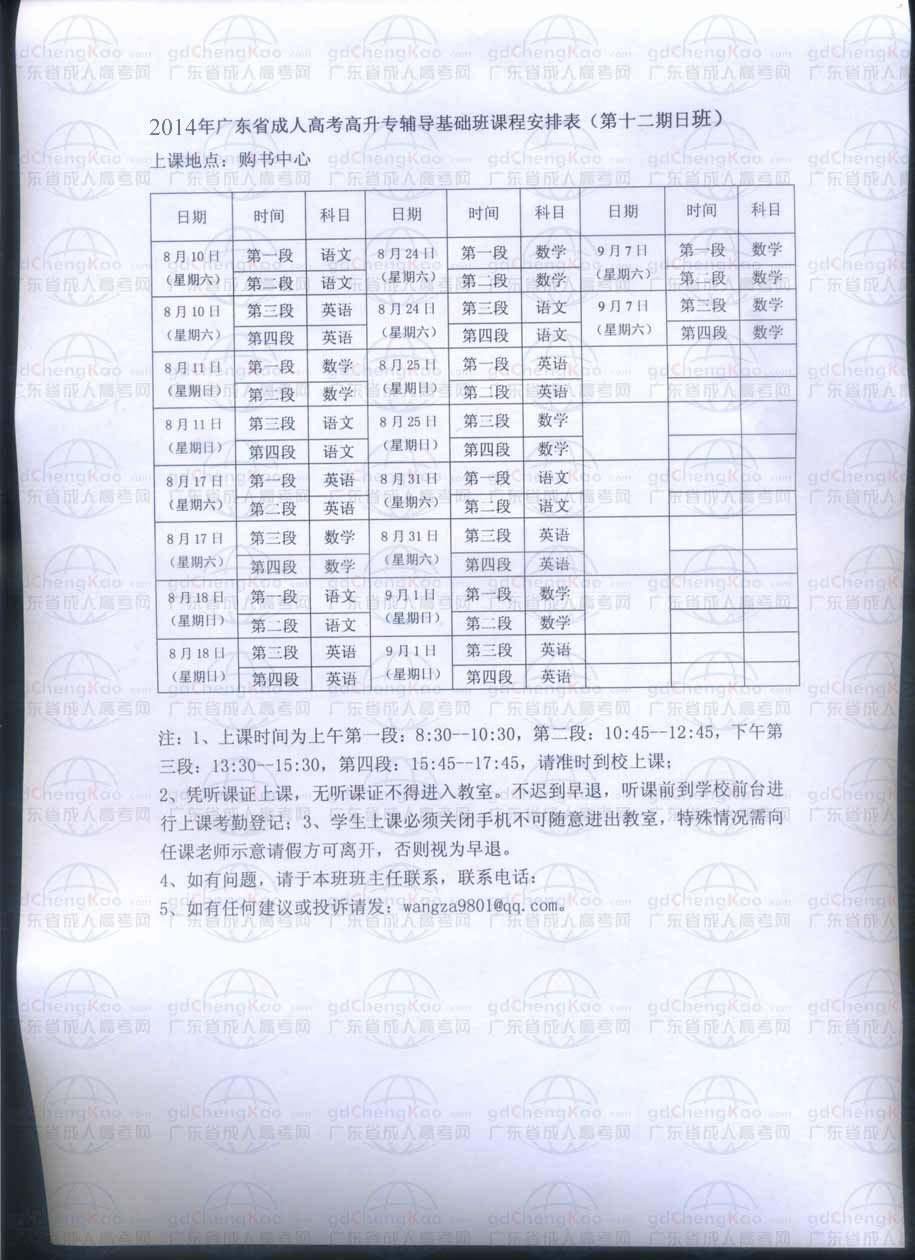 2014年广东省成人高考高升专辅导基础班课程安排表（第十二期日班）
上课地点：购书中心
日期 时间 科目 日期 时间 科目 日期 时间 科目
8月10日 第一段 语文 8月24日 第一段 数学 9月7日 第一段 数学
（星期六） 第二段 语文 （星期六） 第二段 数学 （星期六） 第二段 数学
8月10日 第三段 英语 8月24日 第三段 语文 9月7日 第三段 数学
（星期六） 第四段 英语 （星期六） 第四段 语文 （星期六） 第四段 数学
8月11日 第一段 数学 8月25日 第一段 英语
（星期日） 第二段 数学 （星期日） 第二段 英语
8月11日 第三段 语文 8月25日 第三段 数学
（星期日） 第四段 语文 （星期日） 第四段 数学
8月17日 第一段 英语 8月31日 第一段 语文
（星期六） 第二段 英语 （星期六） 第二段 语文
8月17日 第三段 数学 8月31日 第三段 英语
（星期六） 第四段 数学 （星期六） 第四段 英语
8月18日 第一段 语文 9月1日 第一段 数学
（星期日） 第二段 语文 （星期日） 第二段 数学
8月18日 第三段 英语 9月1日 第三段 英语
（星期日） 第四段 英语 （星期日） 第四段 英语
注：1、上课时间为上午第一段：8:30--10:30，第二段：10:45--12:45，下午第
三段：13:30--15:30，第四段：15:45--17:45，请准时到校上课；
2、凭听课证上课，无听课证不得进入教室。不迟到早退，听课前到学校前台进
行上课考勤登记；3、学生上课必须关闭手机不可随意进出教室，特殊情况需向
任课老师示意请假方可离开，否则视为早退。
4、如有问题，请于本班班主任联系，联系电话：
5、如有任何建议或投诉请发：wangza9801@qq.com。
gdChengKao.com
广东省成人高考网